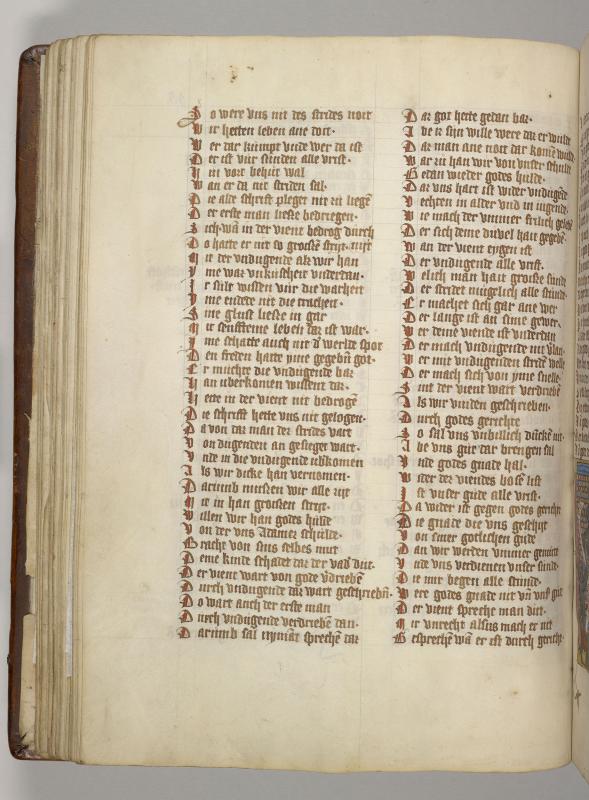 S o were vns nit des strides noit
W ir hetten leben ane doit·
W er dar kumpt vnde wer da ist
D er ist vur sunden alle vrist·
H in vort behut wal
W an er da nit striden sal·
D ie alde schrift pleget nit zu liegē
D er erste man lieste bedriegen·
in der vient bedrog durch
D o hatte er nit so groissē strijt·
N it der vndugende als wir han
Y me was vnkuscheit vndertan·
I r sult wissen vur die warheit
Y me endete nit die tracheit·
S me glust lieste in gar
N it senftteme leben daz ist war·
Y me schatte auch nit d' werlde spot
D en freden hatte yme gegebē got·
E r muchte die vndugende baz
H an uberkomen wissent daz·
H ette in der vient nit bedrogē
D ie schrift hette vns nit gelogen·
D a von daz man der strides vart
V on dugenden an gesieget wart·
V nde in die vndugende
A ls wir dicke han vernomen·
D arumb mussen wir alle zijt
N it in han groissen strijt·
W illen wir han godes hulde
V on der vns Adames schulde·
B racht von sins selbes mut
D eme kinde schadet daz der vad' dut·
D er vient wart von gode v'drebē
D urch vndugende daz wart geschriebē·
D o wart auch der erste man
D urch vndugende verdriebē dan·
D arumb sal nyman sprechē daz
D az got hette gedan baz·
I be iz sijn wille were daz er wulde
D az man ane noit dar komē wulde
W ar zu han wir von vnser schulde
G edan wieder godes hulde·
D az vns hart ist wider vndugēde
V echten in alder vnd in iugende·
W ie mach der vmmer frilich
D er sich deme duvel hait gegebē·
W an der vient eygen ist
D er vndugende alle vrist·
W elich man hait groisse sunde
D er stridet mugelich alle stunde·
E r machet sich gar ane wer
D er lange ist an sime gewer·
W er deme viende ist vndertan
D er mach vndugende nit
W er mit vndugenden stridē welle
D er mach sich von yme snelle·
S int der vient wart verdriebē
A ls wir vinden geschrieben·
D urch godes gerichte
S o sal vns vnbillich dunckē nit·
I be vns gut daz brengen sal
V nde godes gnade hal·
W ider des viendes bose list
I st vnser gude alle vrist·
D a wider ist gegen godes gericht
D ie gnade die vns geschijt
V on siner gotlichen gude
D an wir werden vmmer gemude
V nde vns verdienen vnser sunde
D ie mir begen alle stunde·
W ere godes gnade nit vn̄ vns' gut
D er vient sprecht man dut·
M ir vnrecht alsus mach er nit
G esprechē wā er ist durch gericht·